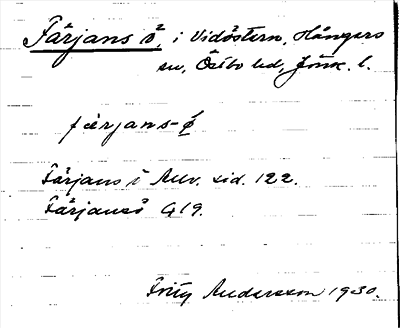 Färjans ö, i Vidöstern, Hångers
sn, Östbo hd, Jönk. l.
färjans-ǿ
Färjans ö Allv. sid. 122.
Färjansö G19.
Fritz Andersson 1930.